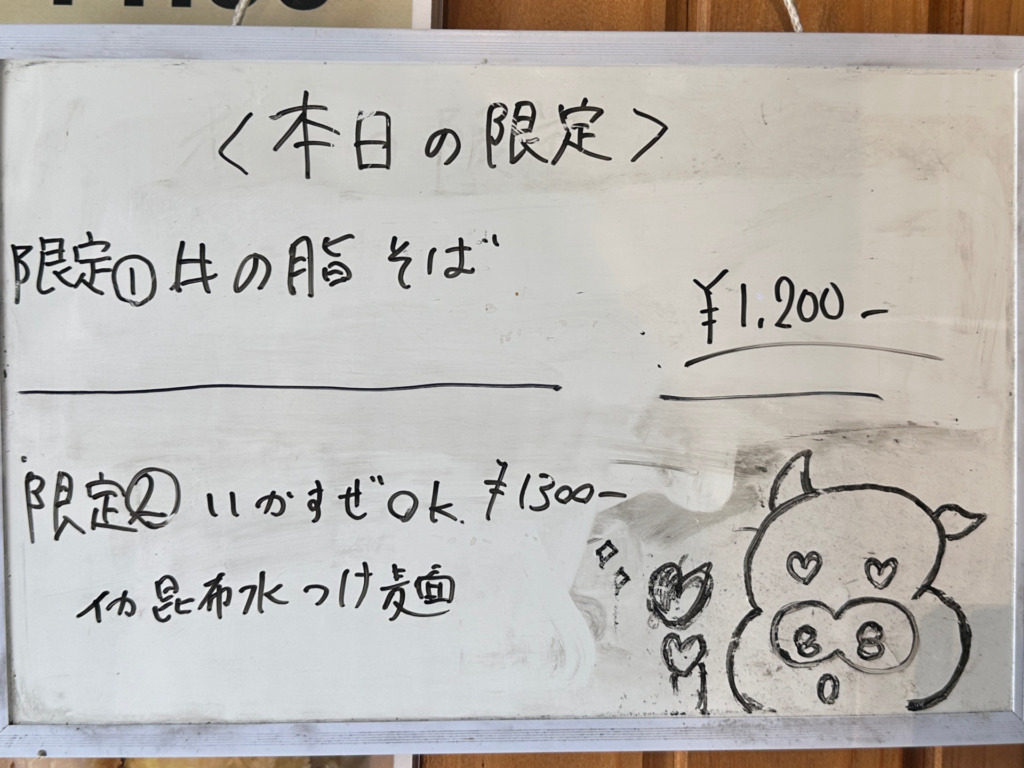 <本日の限定>
限定① 井の脂そば
¥1.200-
限定② いかすぜOK. ¥1300-
イカ昆布水つけ麺